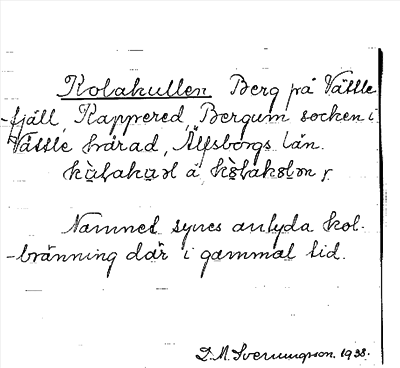 Kolakullen Berg på Vättle
-fjäll, Kappered, Bergum socken i
Vättle härad, Älfsborgs län.
å
Namnet synes antyda kol-
-bränning där i gammal tid.
D. M. Svenungson. 1938.